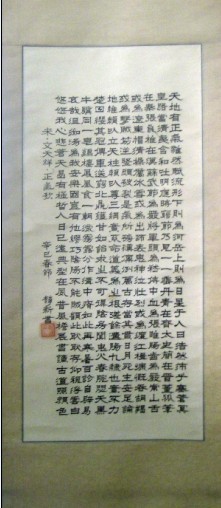 天地有正氣雜然賦流形下則為河嶽上則為日星於人曰浩然沛乎塞蒼冥
皇路當清夷含和吐明庭時窮節乃見一一垂丹青在齊太史簡在晉董狐筆
在秦張良椎在漢蘇武節為嚴將軍頭為嵇侍中血為張睢陽齒為顏常山舌
或為遼東帽清操厲冰雪或為出師表鬼神泣壯烈或為渡江楫慷慨吞胡羯
或為擊賊笏逆豎頭破裂是氣所磅礴凜烈萬古存當其貫日月生死安足論
地維賴以立天柱賴以尊三綱實繫命道義為之根嗟予遘陽九隸也實不力
楚囚纓其冠傳車送窮北鼎鑊甘如飴求之不可得陰房闃鬼火春院閟天黑
牛驥同一皂雞棲鳳凰食一朝蒙霧露分作溝中瘠如此再寒暑百沴自辟易
哀哉沮洳場為我安樂國豈有他繆巧陰陽不能賊顧此耿耿在仰視浮雲白
悠悠我心悲蒼天曷有極哲人日已遠典型在夙昔風簷展書讀古道照顏色
宋文天祥正氣歌
辛巳春節